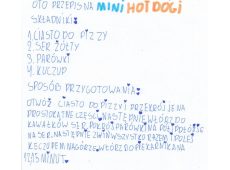 OTO PRZEPIS NA MINI HOT DOGI
SKŁADNIKI:
1. CIASTO DO PIZZY
2. SER ŻÓŁTY
3. PARÓWKI
4. KUCZUP
SPOSÓB PRZYGOTOWANIA:
OTWÓŻ CIASTO DO PIZZY I PRZEKRÓJ JE NA
PROSTOKĄTNE CZĘŚCI. NASTĘPNIE WŁÓRZ DO
KAWAŁKÓW SER. POKRÓJ PARÓWKI NA PÓŁ POŁÓŻ
NA SER. NASTĘPNIE ZWIŃ WSZYSTKO RAZEM. POLEJ
KECZUPEM NA GÓRZE. WŁÓRZ DO PIEKARNIKA NA
12,15 MINUT.